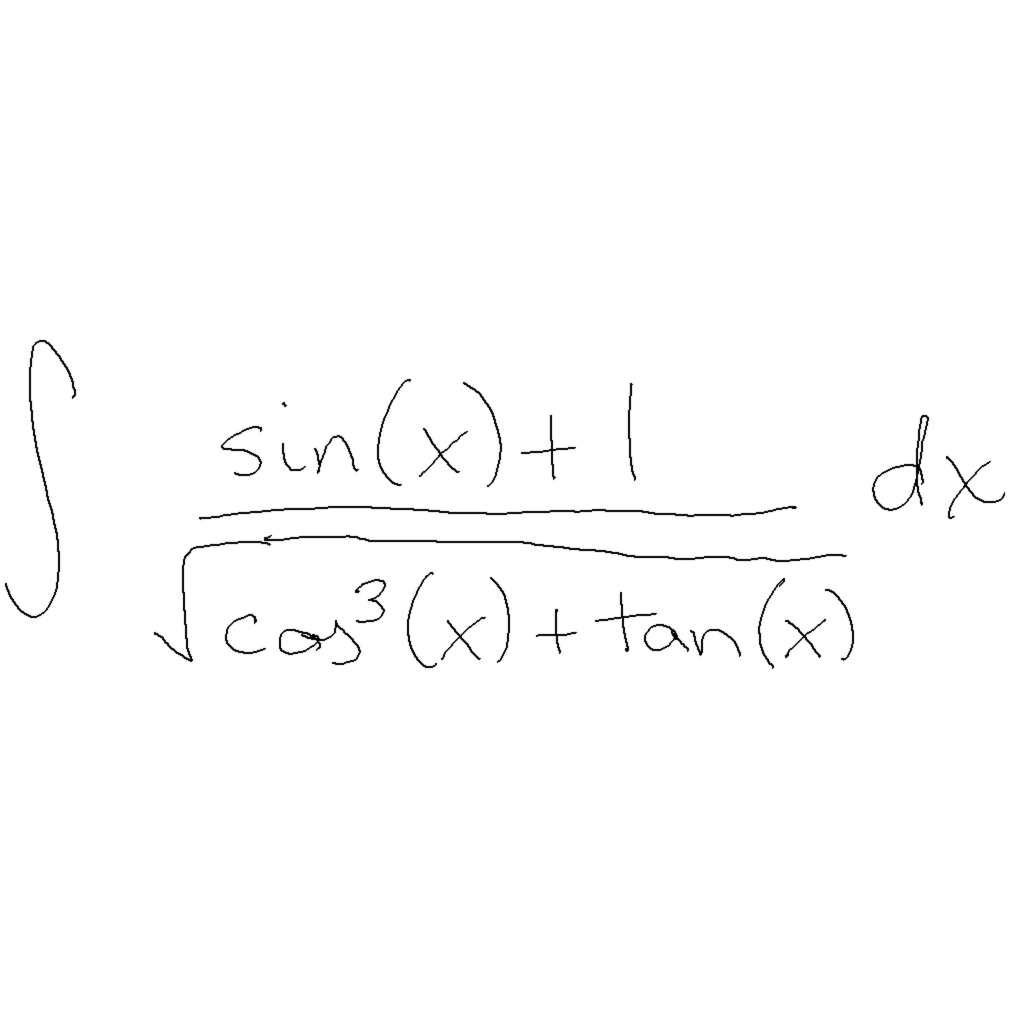 ∫ (sin(x)+1) / √(cos³(x)+tan(x)) dx